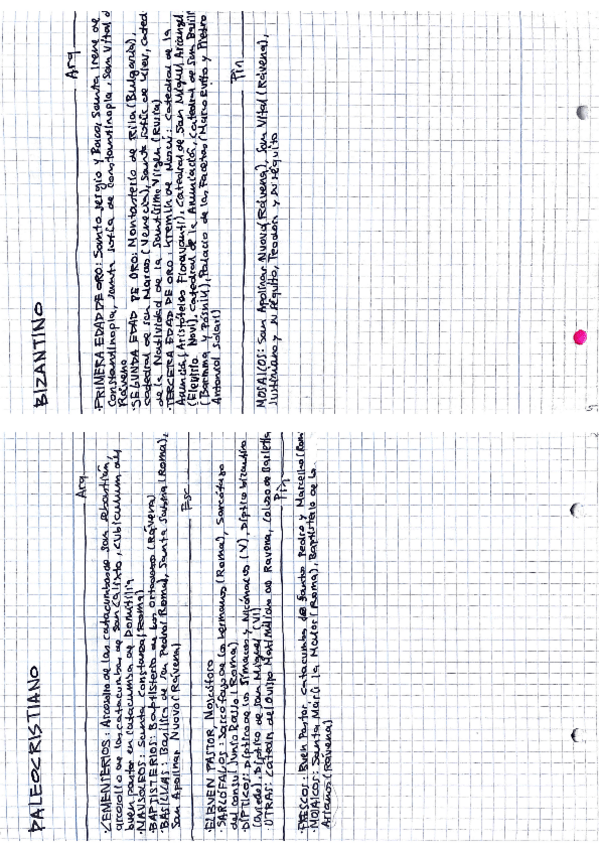 PALEOCRISTIANO
Arq
·CEMENTERIOS: Arcosolio de las catacumbas de san sebastián,
arcosolio de las catacumbas de san calixto, cubiculum del
buen pastor en catacumba de Domitilia
·MAUSOLEOS: Santa Constanza (Roma)
·BAPTISTERIOS: Baptisterio de los ortodoxos (Rávena)
·BASÍLICAS: Basílica de san Pedro (Roma), Santa Sabina (Roma),
San Apolinar Nuovo (Rávena)
Esc
·EL BUEN PASTOR,
·SARCÓFAGOS: Sarcófago de los hermanos (Roma), sarcófago
del consul Junio Basso (Roma)
·DÍPTICOS: Díptico de los Símacos y Nicómacos (V), Díptico bizantino
Díptico de san Miguel (VI)
·OTRAS: Cátedra del Obispo Maximiliano de Ravena, Coloso de Barletta
Pin
·FRESCOS: Buen Pastor, catacumbas de Santos Pedro y Marcelino (Rom
·MOSAICOS: Santa María la Mayor (Roma), Baptisterio de los
Arrianos (Rávena)
BIZANTINO
Arq
·PRIMERA EDAD DE ORO: Santo Sergio y Baco, Santa Irene de
Constantinopla, santa sofía de Constantinopla, San Vital d
Rávena
·SEGUNDA EDAD DE ORO: Monasterio de Rila (Bulgaria),
catedral de san Marcos (Venecia), Santa sofía de Kiev, cated
de la Natividad de la Santísima Virgen (Rusia)
·TERCERA EDAD DE ORO: Kremlin de Moscú: catedral de la
Asunción (Aristóteles Fioravanti), catedral de San Miguel Arcángel
(Alevisio Novi), catedral de la Anunciación, Catedral de San Basilio
(Barma y Pósnik), Palacio de las Facetas (Marco Ruffo y Pietro
Antonio Solari)
Pin
MOSAICOS: San Apolinar Nuovo (Rávena), San Vital (Rávena),
Justiniano y su séquito, Teodora y su séquito